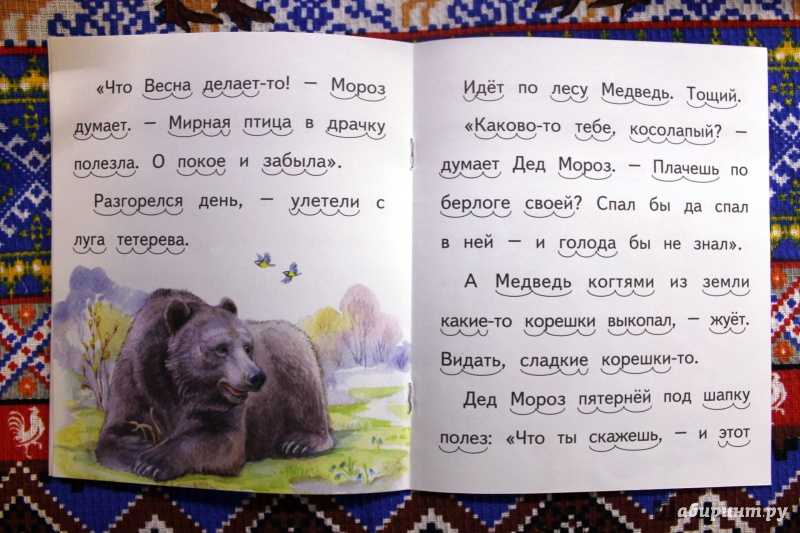 «Что Весна делает-то! – Мороз
думает. – Мирная птица в драчку
полезла. О покое и забыла».
Разгорелся день, – улетели с
луга тетерева.
Идёт по лесу Медведь. Тощий.
«Каково-то тебе, косолапый? –
думает Дед Мороз. – Плачешь по
берлоге своей? Спал бы да спал
в ней – и голода бы не знал».
А Медведь когтями из земли
какие-то корешки выкопал, – жуёт.
Видать, сладкие корешки-то.
Дед Мороз пятернёй под шапку
полез: «Что ты скажешь, – и этот
Лабиринт.ру